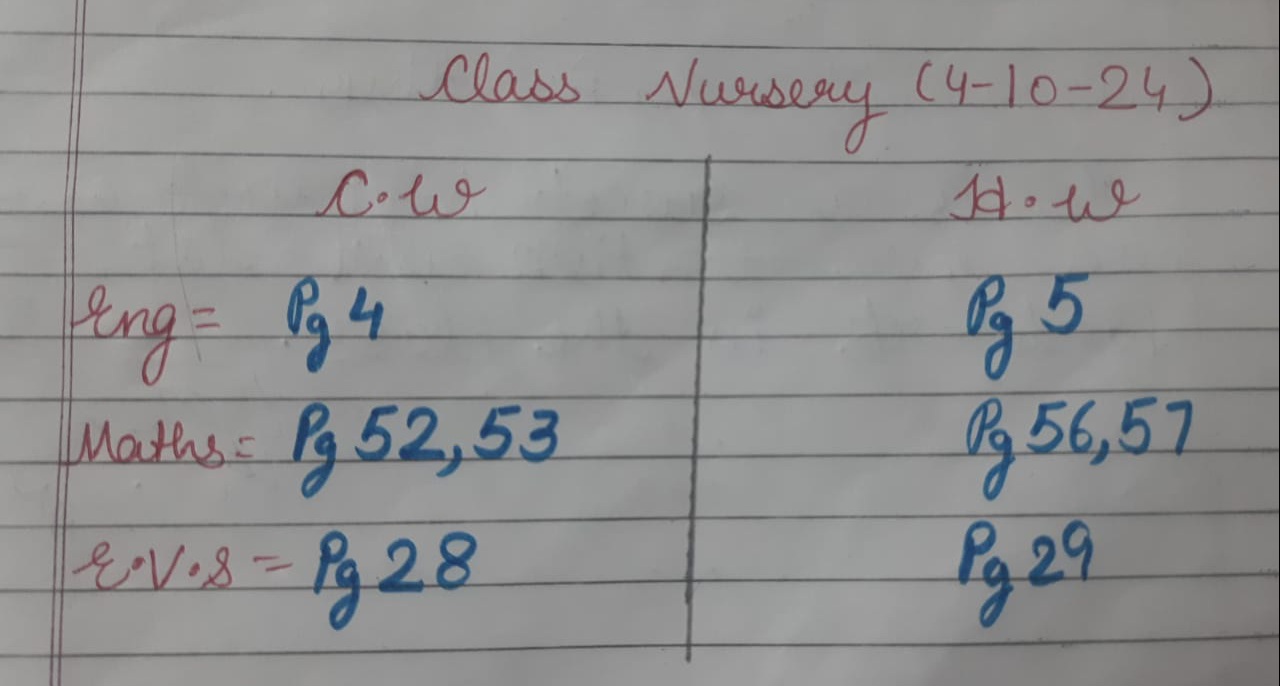 Class Nursery (4-10-24)
C.W H.W
Eng = Pg 4 Pg 5
Maths = Pg 52,53 Pg 56,57
E.V.S = Pg 28 Pg 29